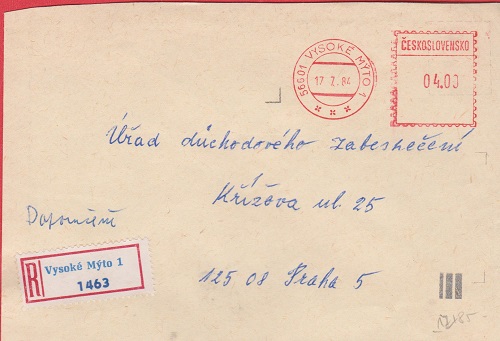 56601 VYSOKÉ MÝTO 1
17. 7. 84
ČESKOSLOVENSKO
04.00
Úřad důchodového zabezpečení
Křížova ul. 25
Doporučeně
R Vysoké Mýto 1
1463
125 08 Praha 5